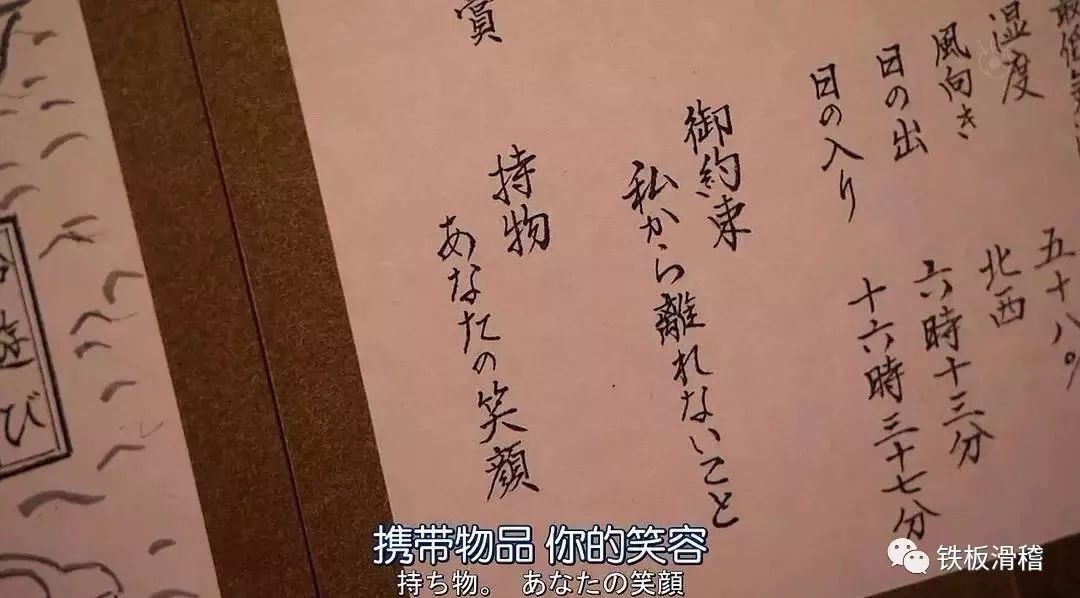 湿度 五十八%
風向き 北西
日の出 六時十三分
日の入り 十六時三十七分
御約束
私から離れないこと
持物
あなたの笑顔
賞
遊び
携带物品 你的笑容
持ち物。 あなたの笑顔
铁板滑稽